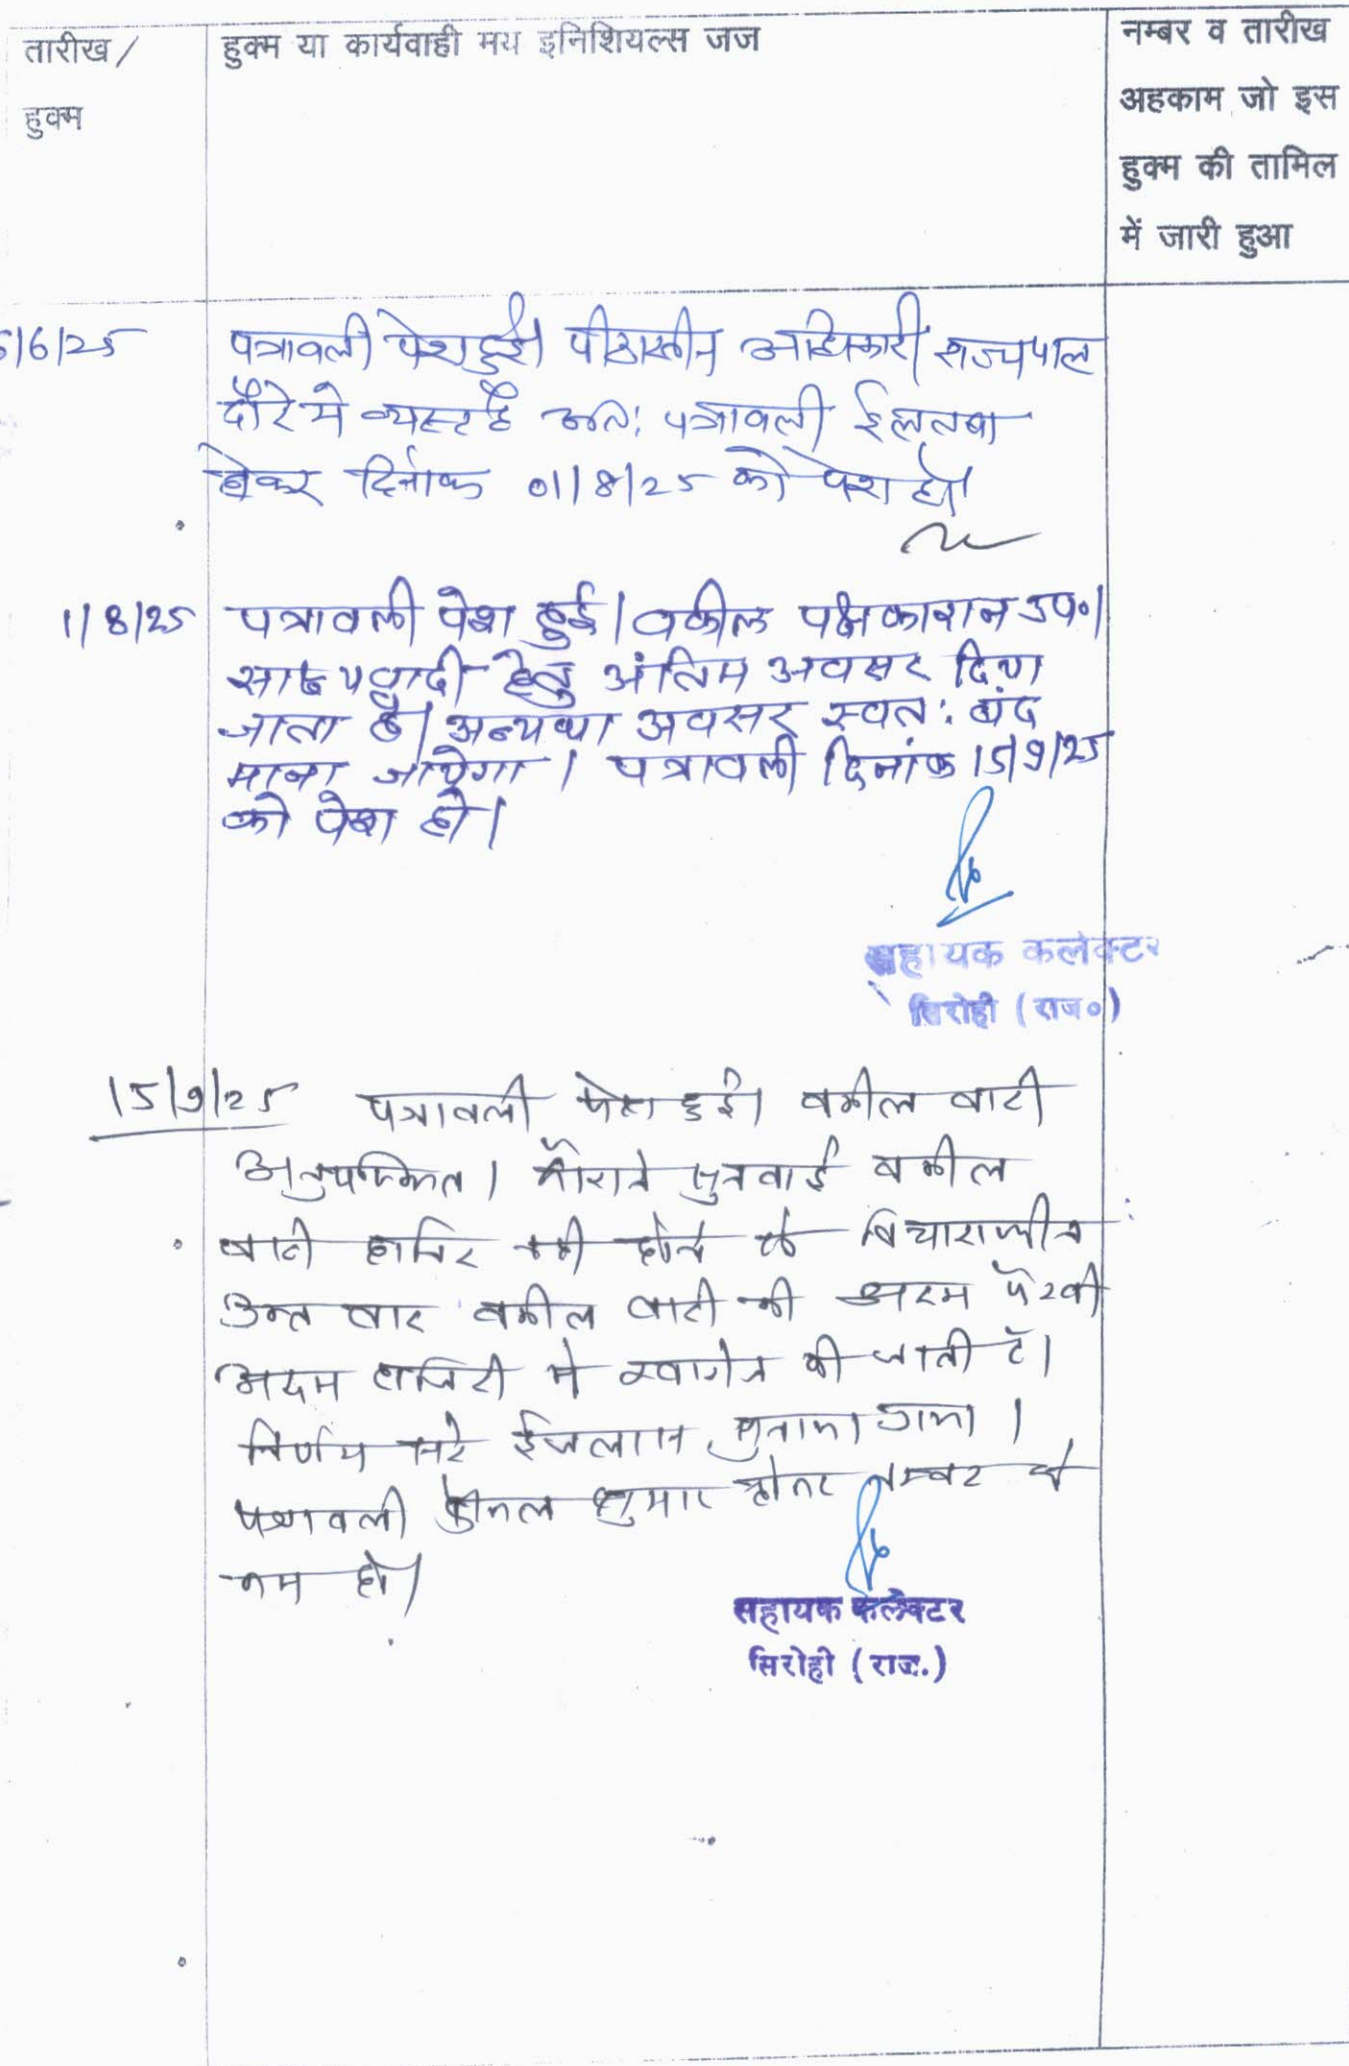 तारीख/
हुक्म
हुक्म या कार्यवाही मय इनिशियल्स जज
नम्बर व तारीख
अहकाम जो इस
हुक्म की तामिल
में जारी हुआ
/6/25 पत्रावली पेश हुई। पीठासीन अधिकारी राज्यपाल
दौरे मे व्यस्त है अतः पत्रावली ईल्तबा
होकर दिनांक 01/8/25 को पेश हो।
1/8/25 पत्रावली पेश हुई। वकील पक्षकारान उप०।
साक्ष्य वादी हेतु अंतिम अवसर दिया
जाता है। अन्यथा अवसर स्वत: बंद
माना जायेगा। पत्रावली दिनांक 15/9/25
को पेश हो।
सहायक कलेक्टर
सिरोही (राज०)
15/9/25 पत्रावली पेश हुई। वकील वादी
अनुपस्थित। दौराने सुनवाई वकील
वादी हाजिर नही होने से विचाराधीन
उक्त वाद वकील वादी की अदम पैरवी
अदम हाजिरी मे की जाती है।
निर्णय सरे ईजलास सुनाया गया।
पत्रावली फैसल शुमार होकर नम्बर से
कम हो।
सहायक कलेक्टर
सिरोही (राज.)